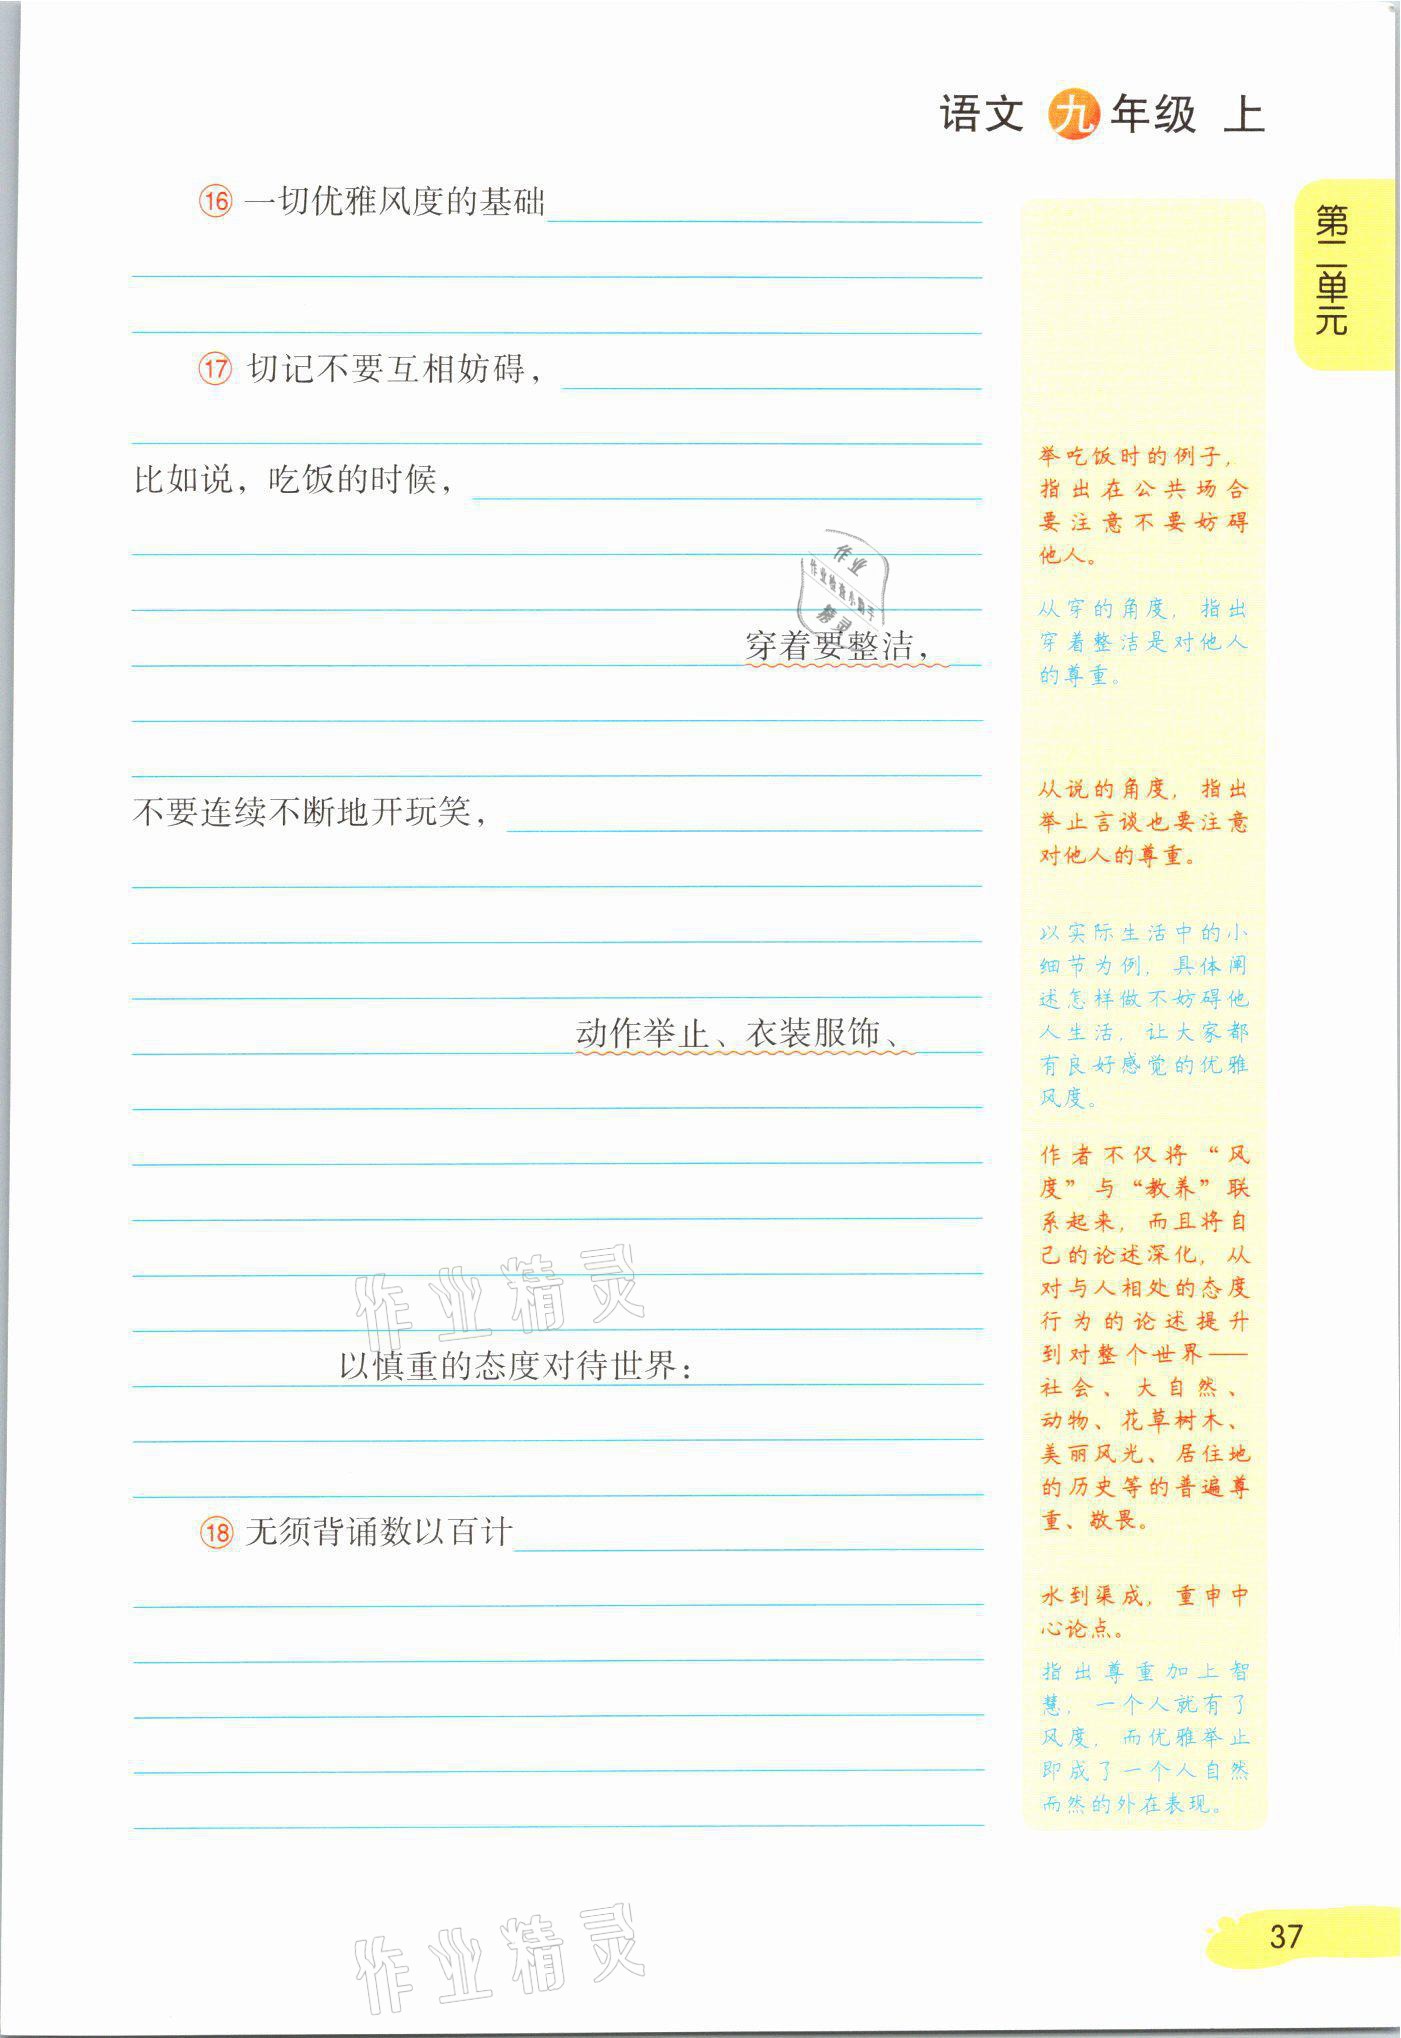 语文 九 年级 上
第二单元
⑯ 一切优雅风度的基础
⑰ 切记不要互相妨碍，
比如说，吃饭的时候，
穿着要整洁，
不要连续不断地开玩笑，
动作举止、衣装服饰、
以慎重的态度对待世界：
⑱ 无须背诵数以百计
举吃饭时的例子，
指出在公共场合
要注意不要妨碍
他人。
从穿的角度，指出
穿着整洁是对他人
的尊重。
从说的角度，指出
举止言谈也要注意
对他人的尊重。
以实际生活中的小
细节为例，具体阐
述怎样做不妨碍他
人生活，让大家都
有良好感觉的优雅
风度。
作者不仅将“风
度”与“教养”联
系起来，而且将自
己的论述深化，从
对与人相处的态度
行为的论述提升
到对整个世界——
社会、大自然、
动物、花草树木、
美丽风光、居住地
的历史等的普遍尊
重、敬畏。
水到渠成，重申中
心论点。
指出尊重加上智
慧，一个人就有了
风度，而优雅举止
即成了一个人自然
而然的外在表现。
作业
作业检查小助手
精灵
作业精灵
作业精灵
37